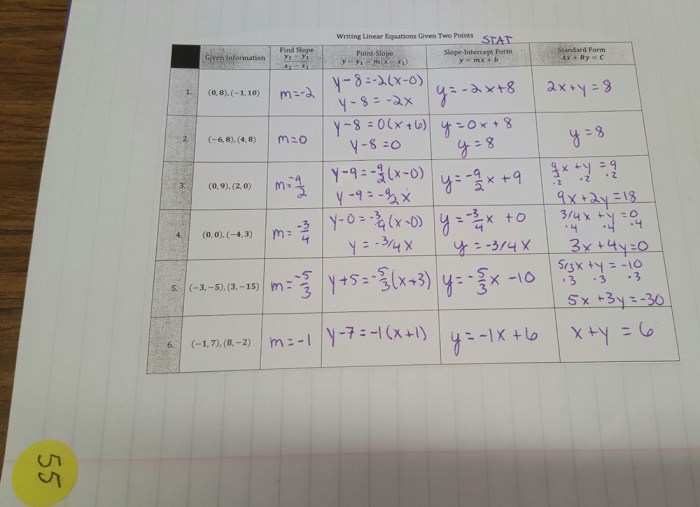 Writing Linear Equations Given Two Points STAT
Given Information
Find Slope
y₂ − y₁
x₂ − x₁
Point-Slope
y − y₁ = m(x − x₁)
Slope-Intercept Form
y = mx + b
Standard Form
Ax + By = C
1. (0, 8), (−1, 10)
m=-2
y-8=-2(x-0)
y-8=-2x
y=-2x+8
2x+y=8
2. (−6, 8), (4, 8)
m=0
y-8=0(x+6)
y-8=0
y=0x+8
y=8
y=8
3. (0, 9), (2, 0)
m=-9/2
y-9=-9/2(x-0)
y-9=-9/2x
y=-9/2x+9
9/2x+y=9
·2 ·2 ·2
9x+2y=18
4. (0, 0), (−4, 3)
m=-3/4
y-0=-3/4(x-0)
y=-3/4x
y=-3/4x+0
y=-3/4x
3/4x+y=0
·4 ·4 ·4
3x+4y=0
5. (−3, −5), (3, −15)
m=-5/3
y+5=-5/3(x+3)
y=-5/3x-10
5/3x+y=-10
·3 ·3 ·3
5x+3y=-30
6. (−1, 7), (8, −2)
m=-1
y-7=-1(x+1)
y=-1x+6
x+y=6
55